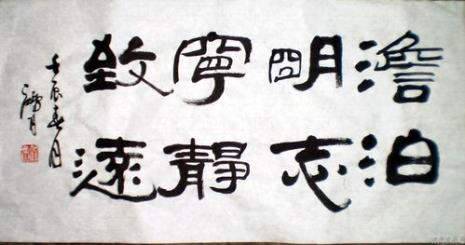 澹泊
明志
寧靜
致遠
壬辰春月